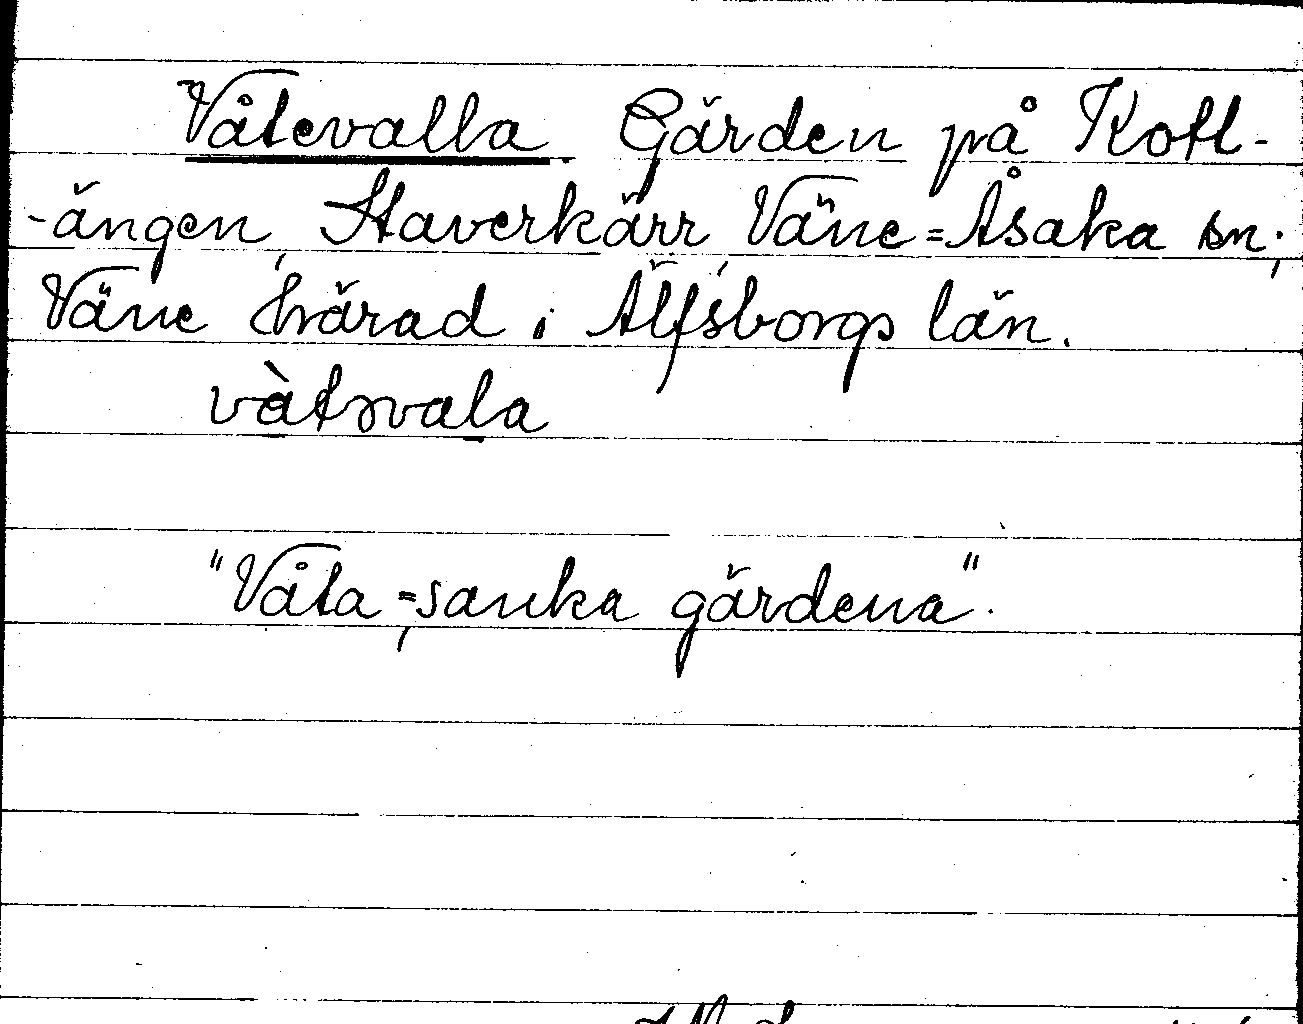 Våtevalla. Gärden på Kotl-
-ängen, Staverkärr Väne=Åsaka sn;
Väne härad i Älfsborgs län.
vàtəvala
"Våta =, sanka gärdena".